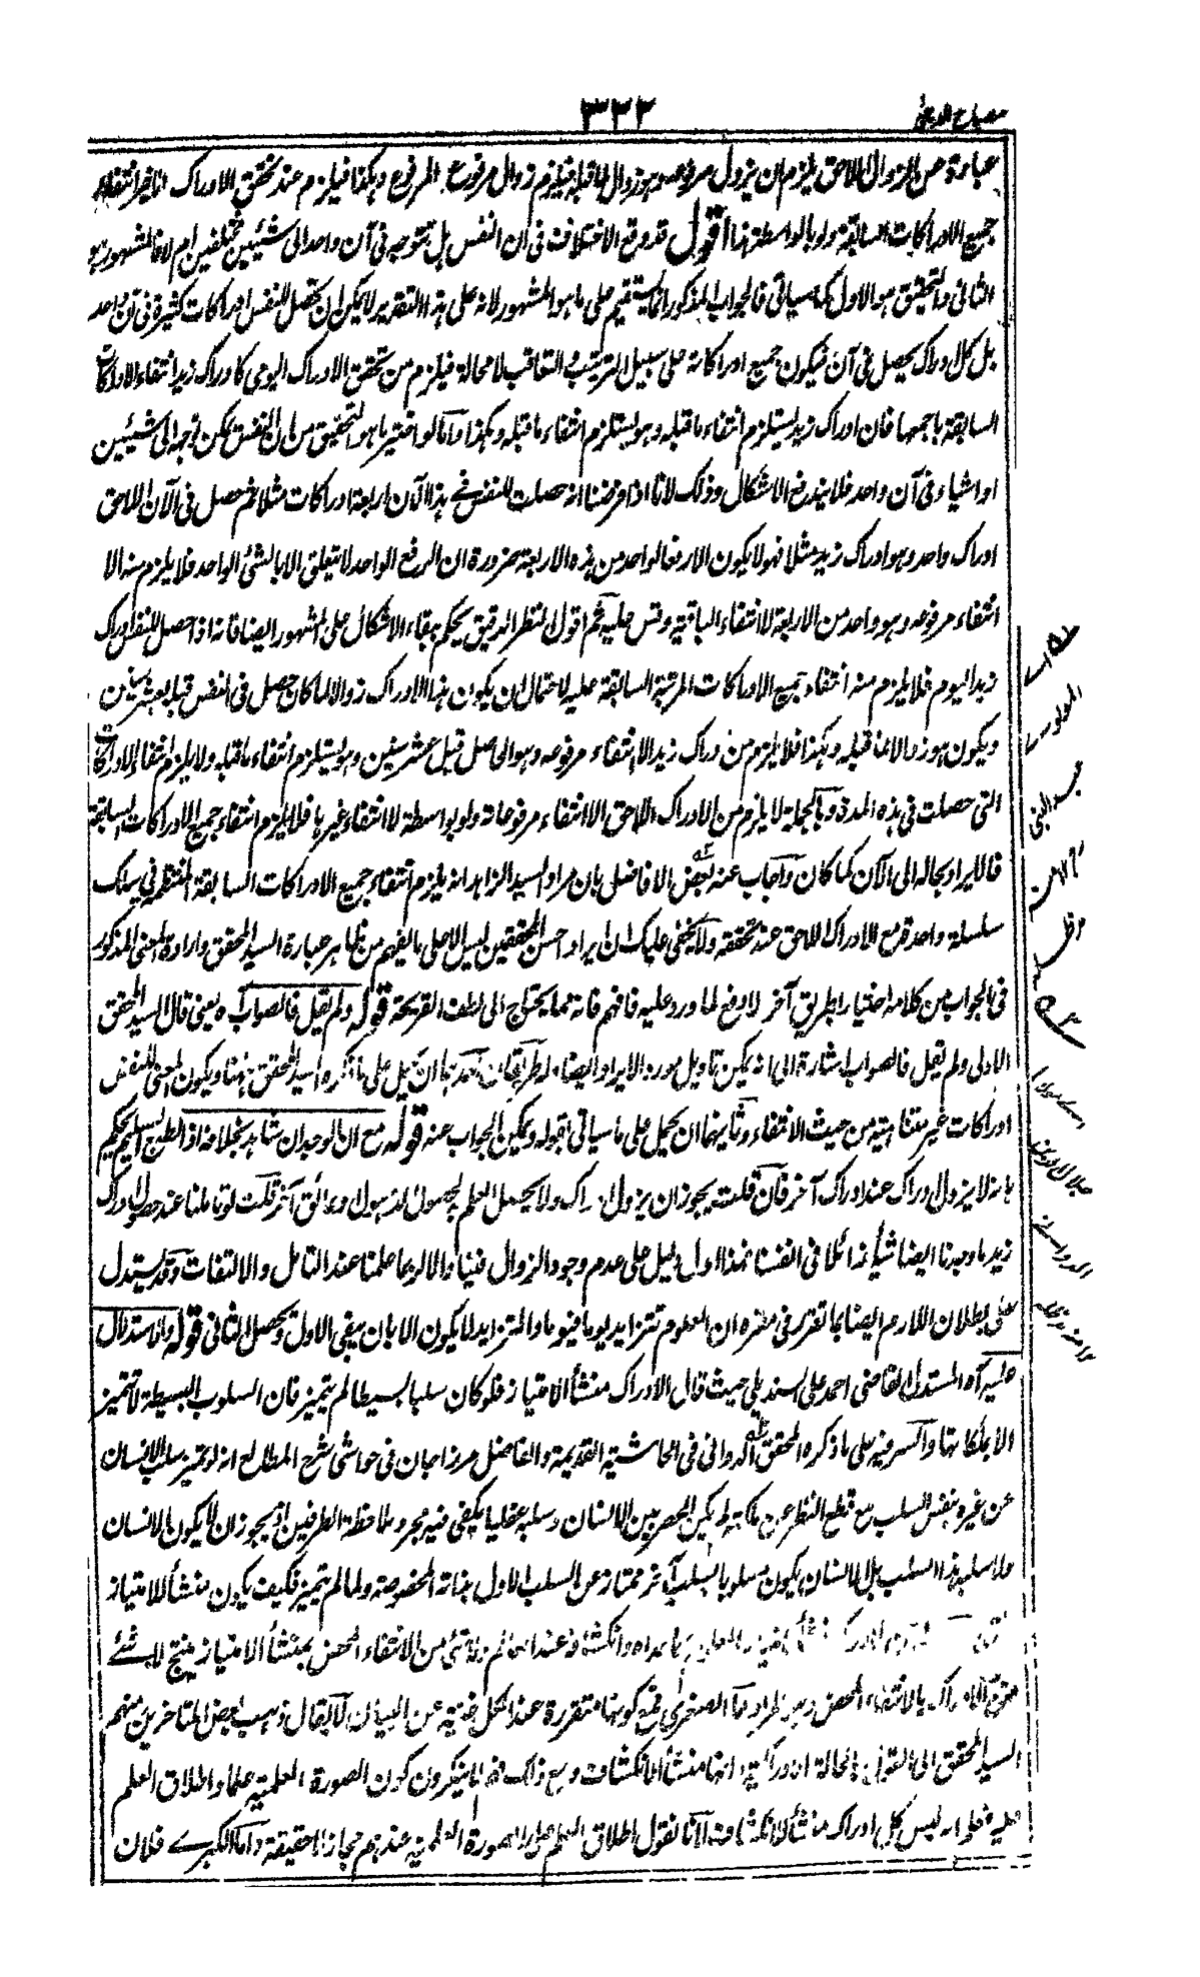 مصباح الدجى
٣٢٢
عبارة عن الزوال اللاحق يلزم ان يزول مرفوعه وهو زوال لما قبله فيلزم زوال مرفوع المرفوع وهكذا فيلزم عند تحقق الادراك انتفاء
جميع الادراكات السابقة ولو بالواسطة هذا اقول قد وقع الاختلاف فى ان النفس هل تتوجه فى آن واحد الى شيئين مختلفين ام لا فالمشهور هو
الثانى والتحقيق هو الاول كما سياتى فالجواب المذكور انما يستقيم على ما هو المشهور لانه على هذا التقدير لا يمكن ان تحصل للنفس ادراكات كثيرة فى آن واحد
بل كل ادراك يحصل فى آن فيكون جميع ادراكاته على سبيل الترتيب والتعاقب لا محالة فيلزم من تحقق الادراك اليومى كادراك زيد انتفاء الادراكات
السابقة باجمعها فان ادراك زيد يستلزم انتفاء ما قبله وهو يستلزم انتفاء ما قبله وهكذا واما لو اختير ما هو التحقيق من ان النفس يمكن توجهه الى شيئين
او اشياء فى آن واحد فلا يندفع الاشكال وذلك لانا اذا فرضنا انه حصلت للنفس فى هذا الآن اربعة ادراكات مثلا ثم حصل فى الآن اللاحق
ادراك واحد وهو ادراك زيد مثلا فهو لا يكون الا رفعا لواحد من هذه الاربعة ضرورة ان الرفع الواحد لا يتعلق الا بالشئ الواحد فلا يلزم منه الا
انتفاء مرفوعه وهو واحد من الاربعة لا انتفاء الباقية وقس عليه ثم اقول النظر الدقيق يحكم ببقاء الاشكال على المشهور ايضا فانه اذا حصل للنفس ادراك
زيد اليوم فلا يلزم منه انتفاء جميع الادراكات المرتبة السابقة عليه لاحتمال ان يكون هذا الادراك زوالا لما كان حصل فى النفس قبله بعشر سنين
ويكون هو زوالا لما قبله وهكذا فلا يلزم من ادراك زيد الا انتفاء مرفوعه وهو الحاصل قبل عشر سنين وهو يستلزم انتفاء ما قبله ولا يلزم انتفاء الادراكات
التى حصلت فى هذه المدة وبالجملة لا يلزم من الادراك اللاحق الا انتفاء مرفوعاته ولو بواسطة لا انتفاء غيرها فلا يلزم انتفاء جميع الادراكات السابقة
فالايراد بحاله الى الآن كما كان واجاب عنه بعض الافاضل بان مراد السيد الزاهد انه يلزم انتفاء جميع الادراكات السابقة المنتظمة فى سلك
سلسلة واحدة مع الادراك اللاحق عند تحققه ولا يخفى عليك ان ايراد احسن المحققين ليس الا على ما يفهم من ظاهر عبارة السيد المحقق وارادة المعنى المذكور
فى الجواب من كلامه اختيار لطريق آخر لا دفع لما ورد عليه فافهم فانه مما يحتاج الى لطف القريحة قوله ولم يقل فالصواب آه يعنى قال السيد المحقق
الاولى ولم يقل فالصواب اشارة الى انه يمكن تاويل مورد الايراد ايضا وله طريقان احدهما ان يحمل على ما ذكره السيد المحقق ههنا ويكون المعنى للنفس
ادراكات غير متناهية من حيث الانتفاء وثانيهما ان يحمل على ما سياتى بقوله ويمكن الجواب عنه قوله مع ان الوجدان شاهد بخلافه اذ الطبع السليم يحكم
بانه لا يزول ادراك عند ادراك آخر فان قلت يجوز ان يزول ادراك ولا يحصل العلم لحصول الذهول وعوائق آخر قلت لو تاملنا عند حصول ادراك
زيد ما وجدنا ايضا شيأ زائلا فى انفسنا فهذا اول دليل على عدم وجود الزوال فينا والا لربما علمنا عند التامل والالتفات وقد يستدل
على بطلان اللازم ايضا بما تقرر فى مقره ان العلوم تتزايد يوما فيوما والتزايد لا يكون الا بان يبقى الاول ويحصل الثانى قوله والاستدلال
عليه آه المستدل القاضى احمد على السنديلى حيث قال الادراك منشأ الامتياز فلو كان سلبا بسيطا لم يتميز فان السلوب البسيطة لا تتميز
الا بملكاتها والسر فيه على ما ذكره المحقق الدوانى فى الحاشية القديمة والفاضل مرزا جان فى حواشى شرح المطالع انه لو تميز سلب الانسان
عن غيره بنفس السلب مع قطع النظر عن ملكته لم يكن الحصر بين الانسان وسلبه عقليا يكفى فيه مجرد ملاحظة الطرفين اذ يجوز ان لا يكون الانسان
ولا سلبه هذا السلب بل الانسان يكون مسلوبا بسلب آخر ممتاز عن السلب الاول بذاته المخصوصة ولما لم يتميز فكيف يكون منشأ للامتياز
المعلوم وانكشافه عند العالم ولا شئ من الانتفاء المحض بمنشأ الامتياز ينتج لا شئ
من الادراك بالانتفاء المحض اما الصغرى فمع كونها متقررة عند الكل غنية عن البيان لا يقال ذهب بعض المتاخرين منهم
السيد المحقق الى القول بالحالة الادراكية انها منشأ الانكشاف ومع ذلك فهم لا ينكرون كون الصورة العلمية علما واطلاق العلم
عليه فعلم انه ليس كل ادراك منشأ لانكشاف لانا نقول اطلاق العلم على الصورة العلمية عندهم مجازا لا حقيقة واما الكبرى فلان
المولوى
عبد النبى
مدظله
جلال الدين
الدوانى